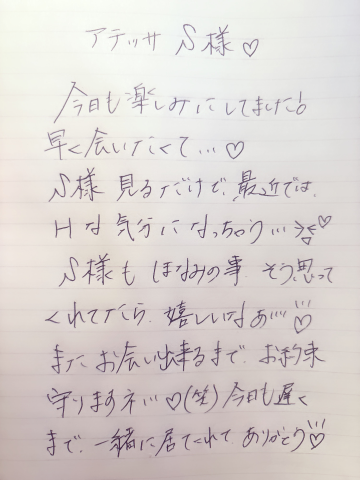 アテッサ S様♡
今日も楽しみにしてました!
早く会いたくて…♡
S様見るだけで、最近では、
Hな気分になっちゃう…♡
S様もほなみの事そう思って
くれてたら、嬉しいなぁ…♡
またお会い出来るまで、お約束
守りますネ…♡(笑)今日も遅く
まで、一緒に居てくれて、ありがとう♡